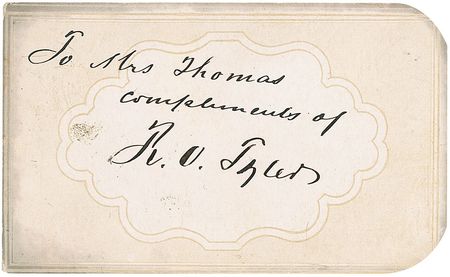 To Mrs Thomas
compliments of
R. O. Tyler